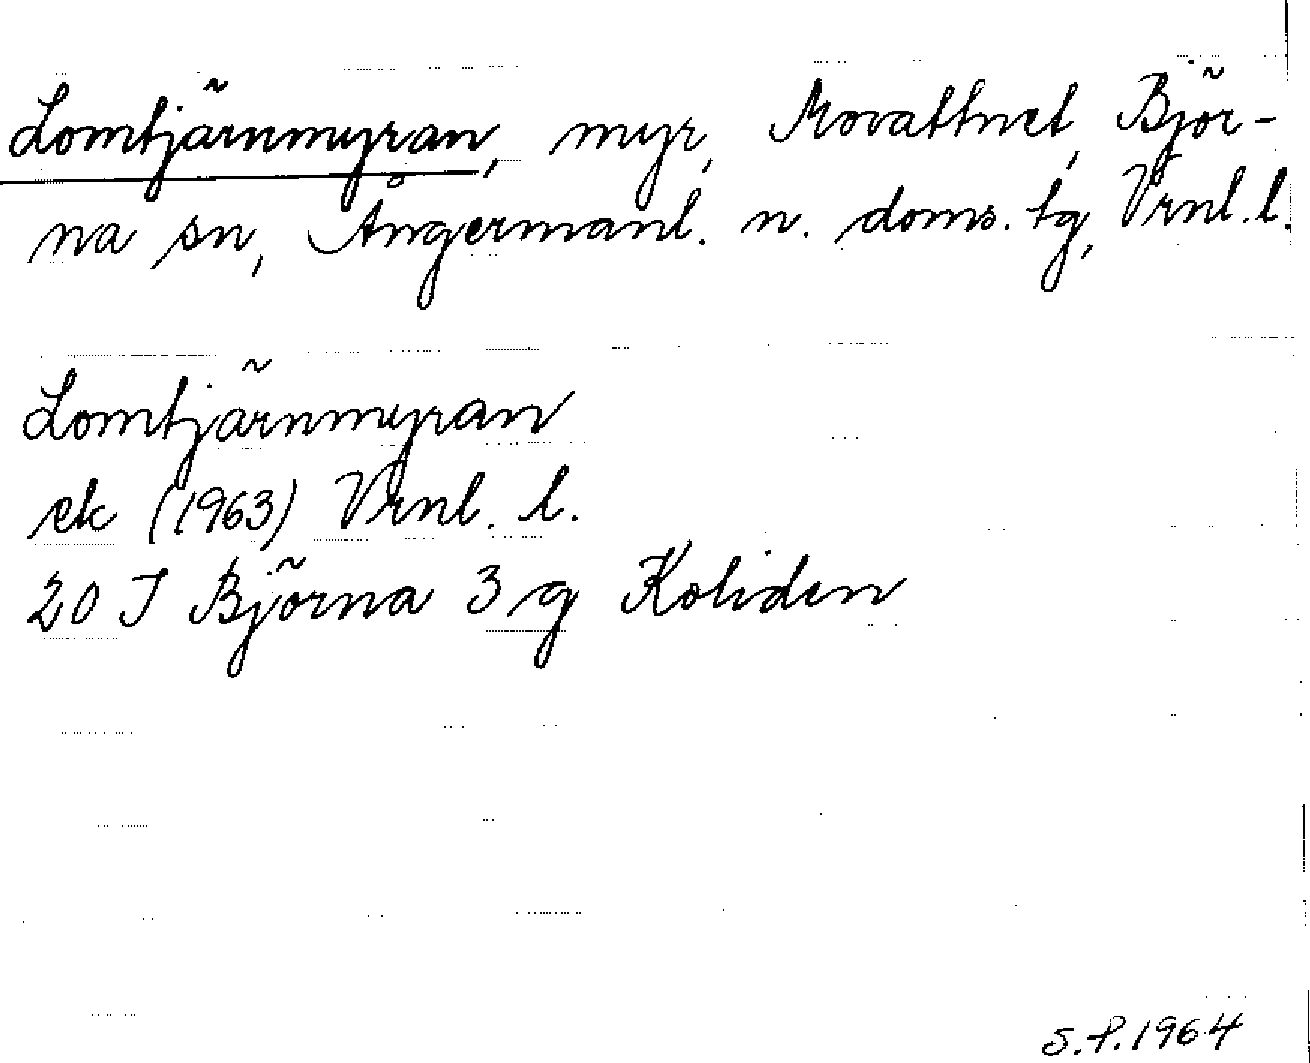 Lomtjärnmyran, myr, Movattnet, Björ-
na sn, Ångermanl. n. doms. tg, Vrnl. l.
Lomtjärnmyran
ek (1963) Vrnl. l.
20 I Björna 3 g Koliden
S.P. 1964